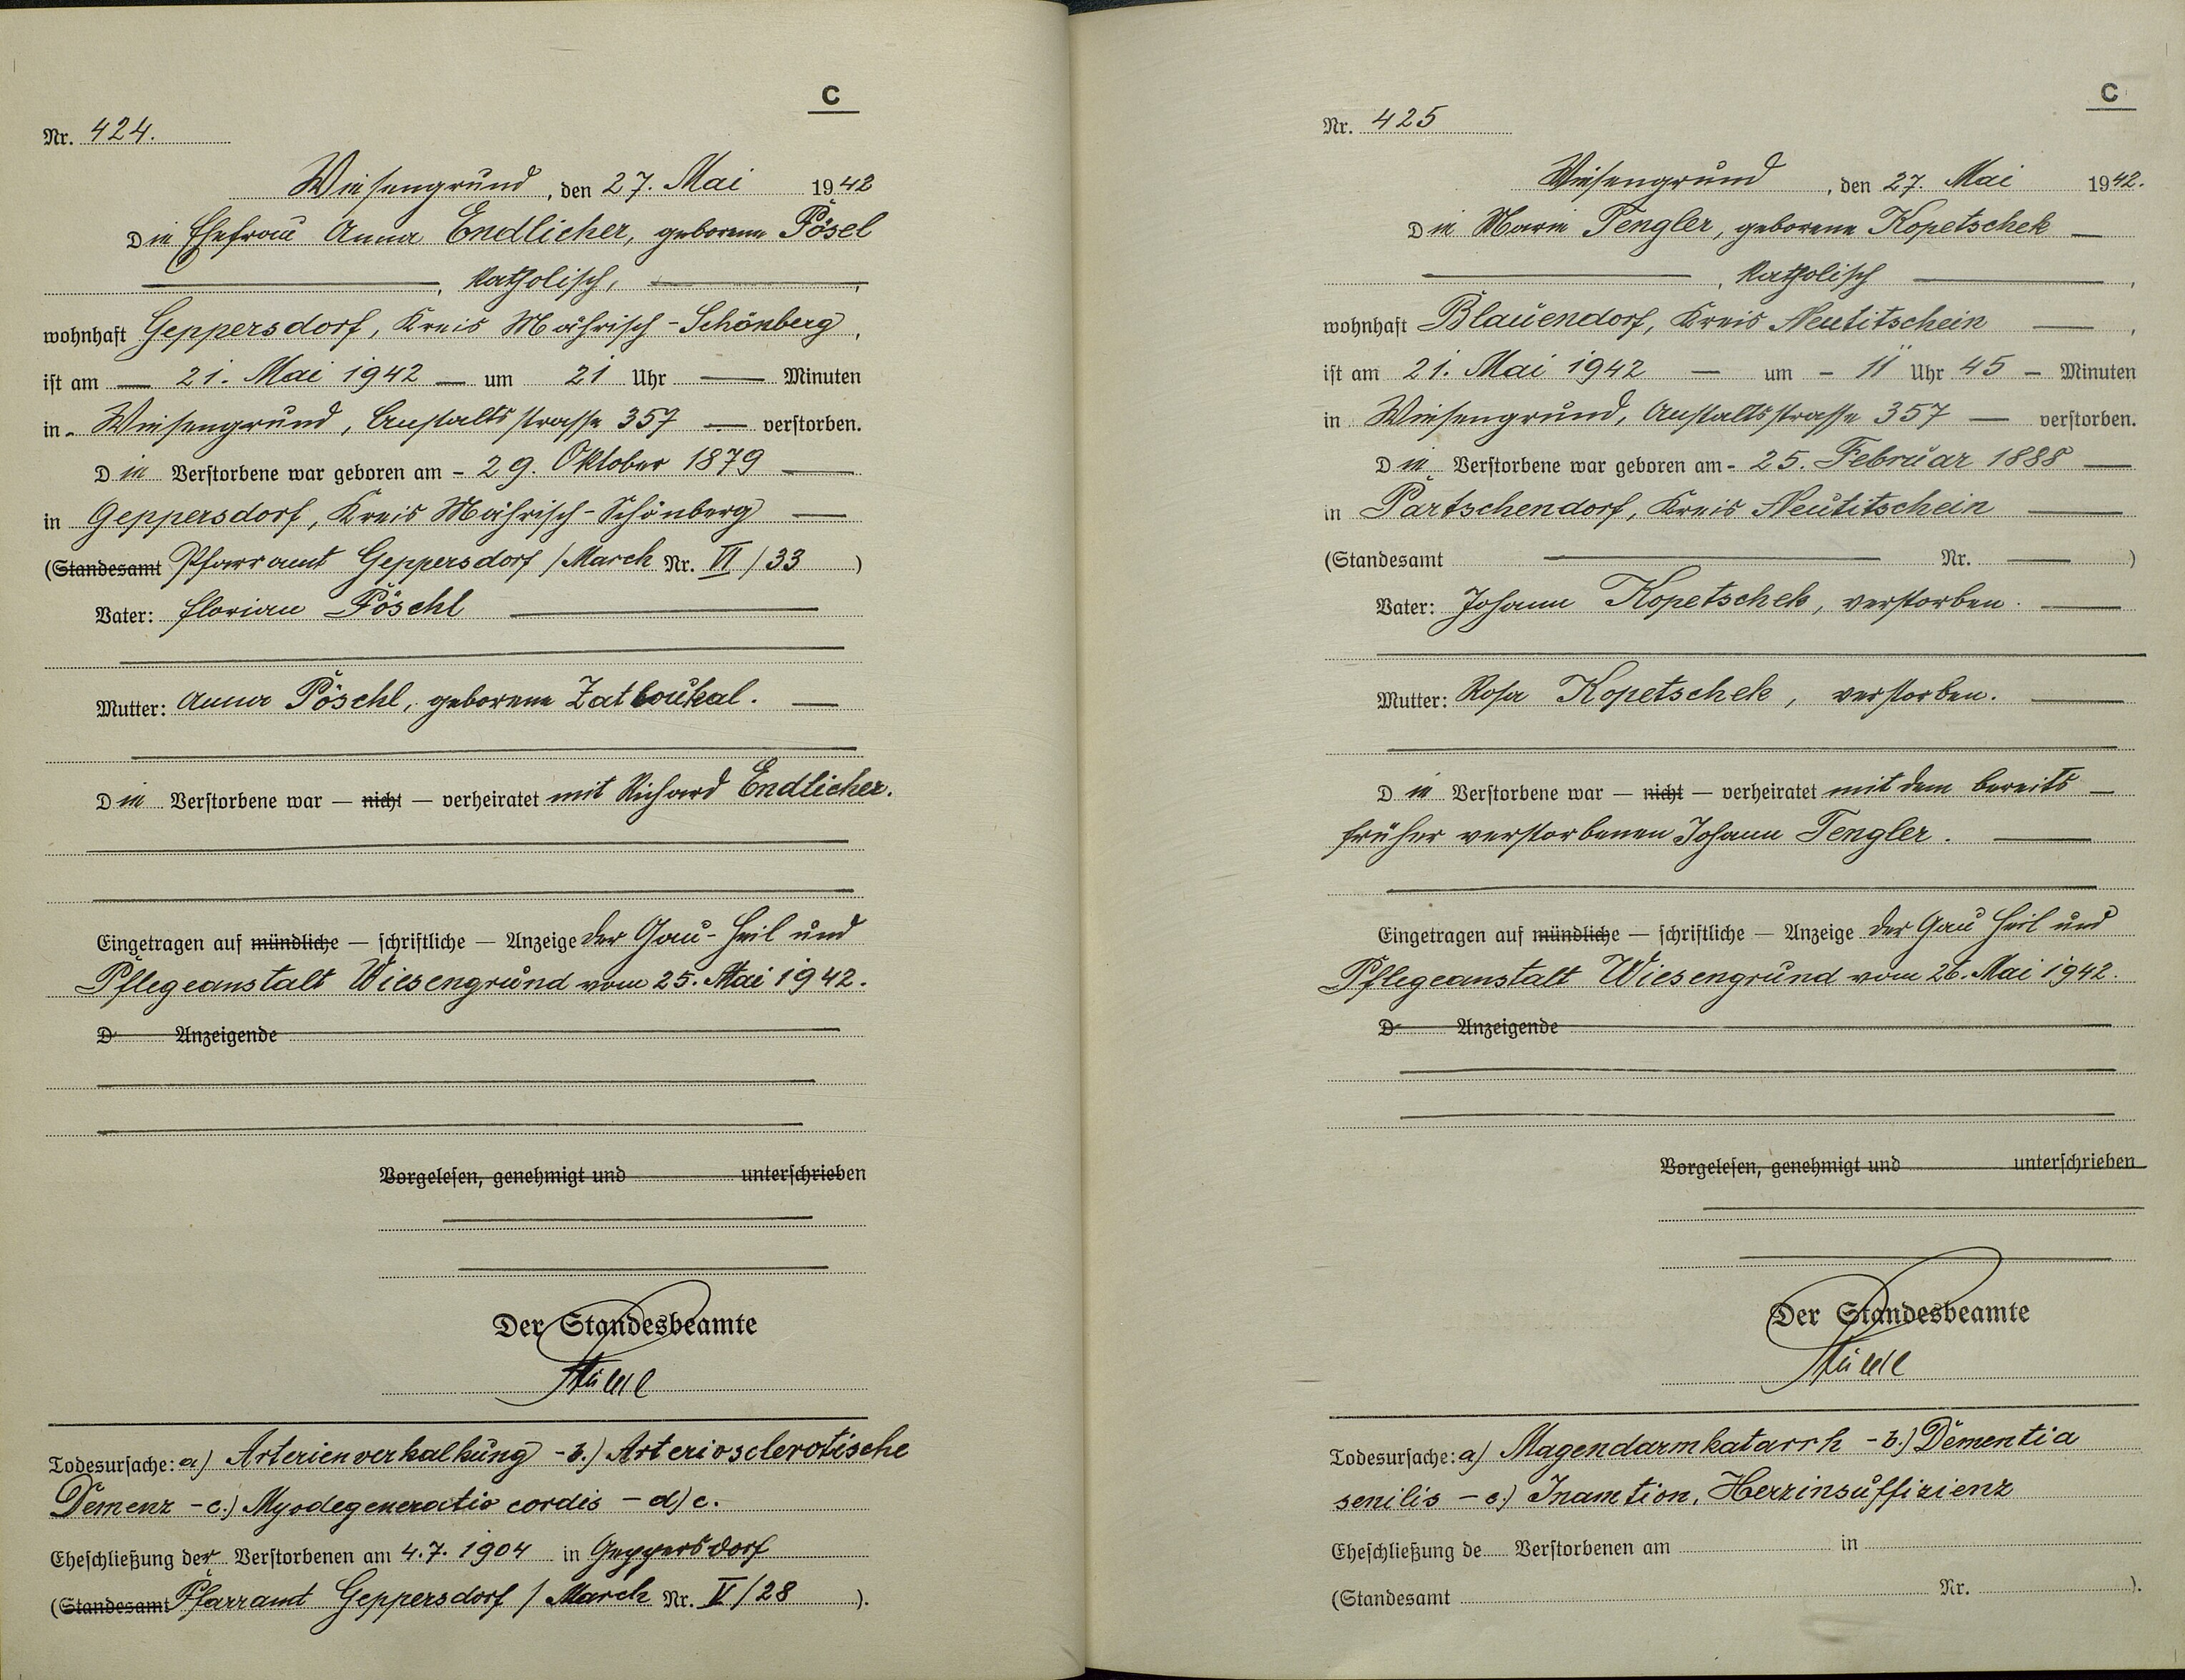 C
Nr. 424.
Wiesengrund, den 27. Mai 1942
Die Ehefrau Anna Endlicher, geborene Pösel
, katholisch,
wohnhaft Geppersdorf, Kreis Mährisch-Schönberg,
ist am 21. Mai 1942 um 21 Uhr Minuten
in Wiesengrund, Anstaltsstrasse 357 verstorben.
Die Verstorbene war geboren am 29. Oktober 1879
in Geppersdorf, Kreis Mährisch-Schönberg
(Standesamt Pfarramt Geppersdorf / March Nr. VI/33)
Vater: Florian Pöschl
Mutter: Anna Pöschl, geborene Zatloukal.
Die Verstorbene war — nicht — verheiratet mit Richard Endlicher.
Eingetragen auf mündliche — schriftliche — Anzeige der Gau-Heil und
Pflegeanstalt Wiesengrund vom 25. Mai 1942.
D Anzeigende
Vorgelesen, genehmigt und unterschrieben
Der Standesbeamte
Todesursache: a) Arterienverkalkung - b.) Arteriosclerotische
Demenz - c.) Myodegeneratio cordis - d) c.
Eheschließung der Verstorbenen am 4.7.1904 in Geppersdorf
(Standesamt Pfarramt Geppersdorf / March Nr. V/28).
C
Nr. 425
Wiesengrund, den 27. Mai 1942.
Die Marie Tengler, geborene Kopetschek
, katholisch ,
wohnhaft Blauendorf, Kreis Neutitschein ,
ist am 21. Mai 1942 um 11 Uhr 45 Minuten
in Wiesengrund, Anstaltsstrasse 357 verstorben.
Die Verstorbene war geboren am 25. Februar 1888
in Partschendorf, Kreis Neutitschein
(Standesamt Nr. )
Vater: Johann Kopetschek, verstorben.
Mutter: Rosa Kopetschek, verstorben.
Die Verstorbene war — nicht — verheiratet mit dem bereits
früher verstorbenen Johann Tengler.
Eingetragen auf mündliche — schriftliche — Anzeige der Gau Heil und
Pflegeanstalt Wiesengrund vom 26. Mai 1942.
D Anzeigende
Vorgelesen, genehmigt und unterschrieben
Der Standesbeamte
Todesursache: a) Magendarmkatarrh - b.) Dementia
senilis - c.) Inamtion, Herzinsuffizienz
Eheschließung de Verstorbenen am in
(Standesamt Nr. ).